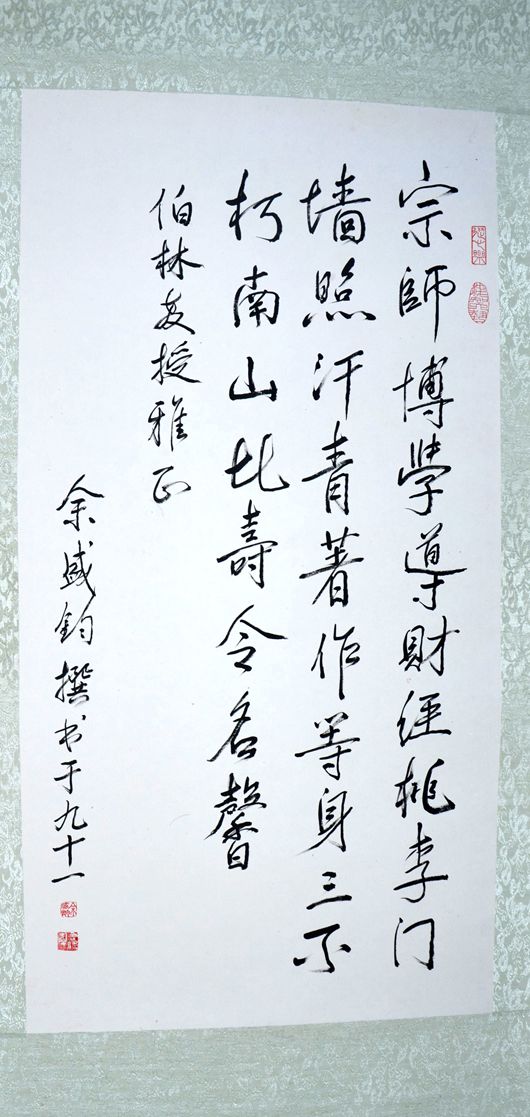 宗師博學導財经桃李门
墙照汗青著作等身三不
朽南山比壽令名馨
伯林教授雅正
余盛钧撰书于九十一